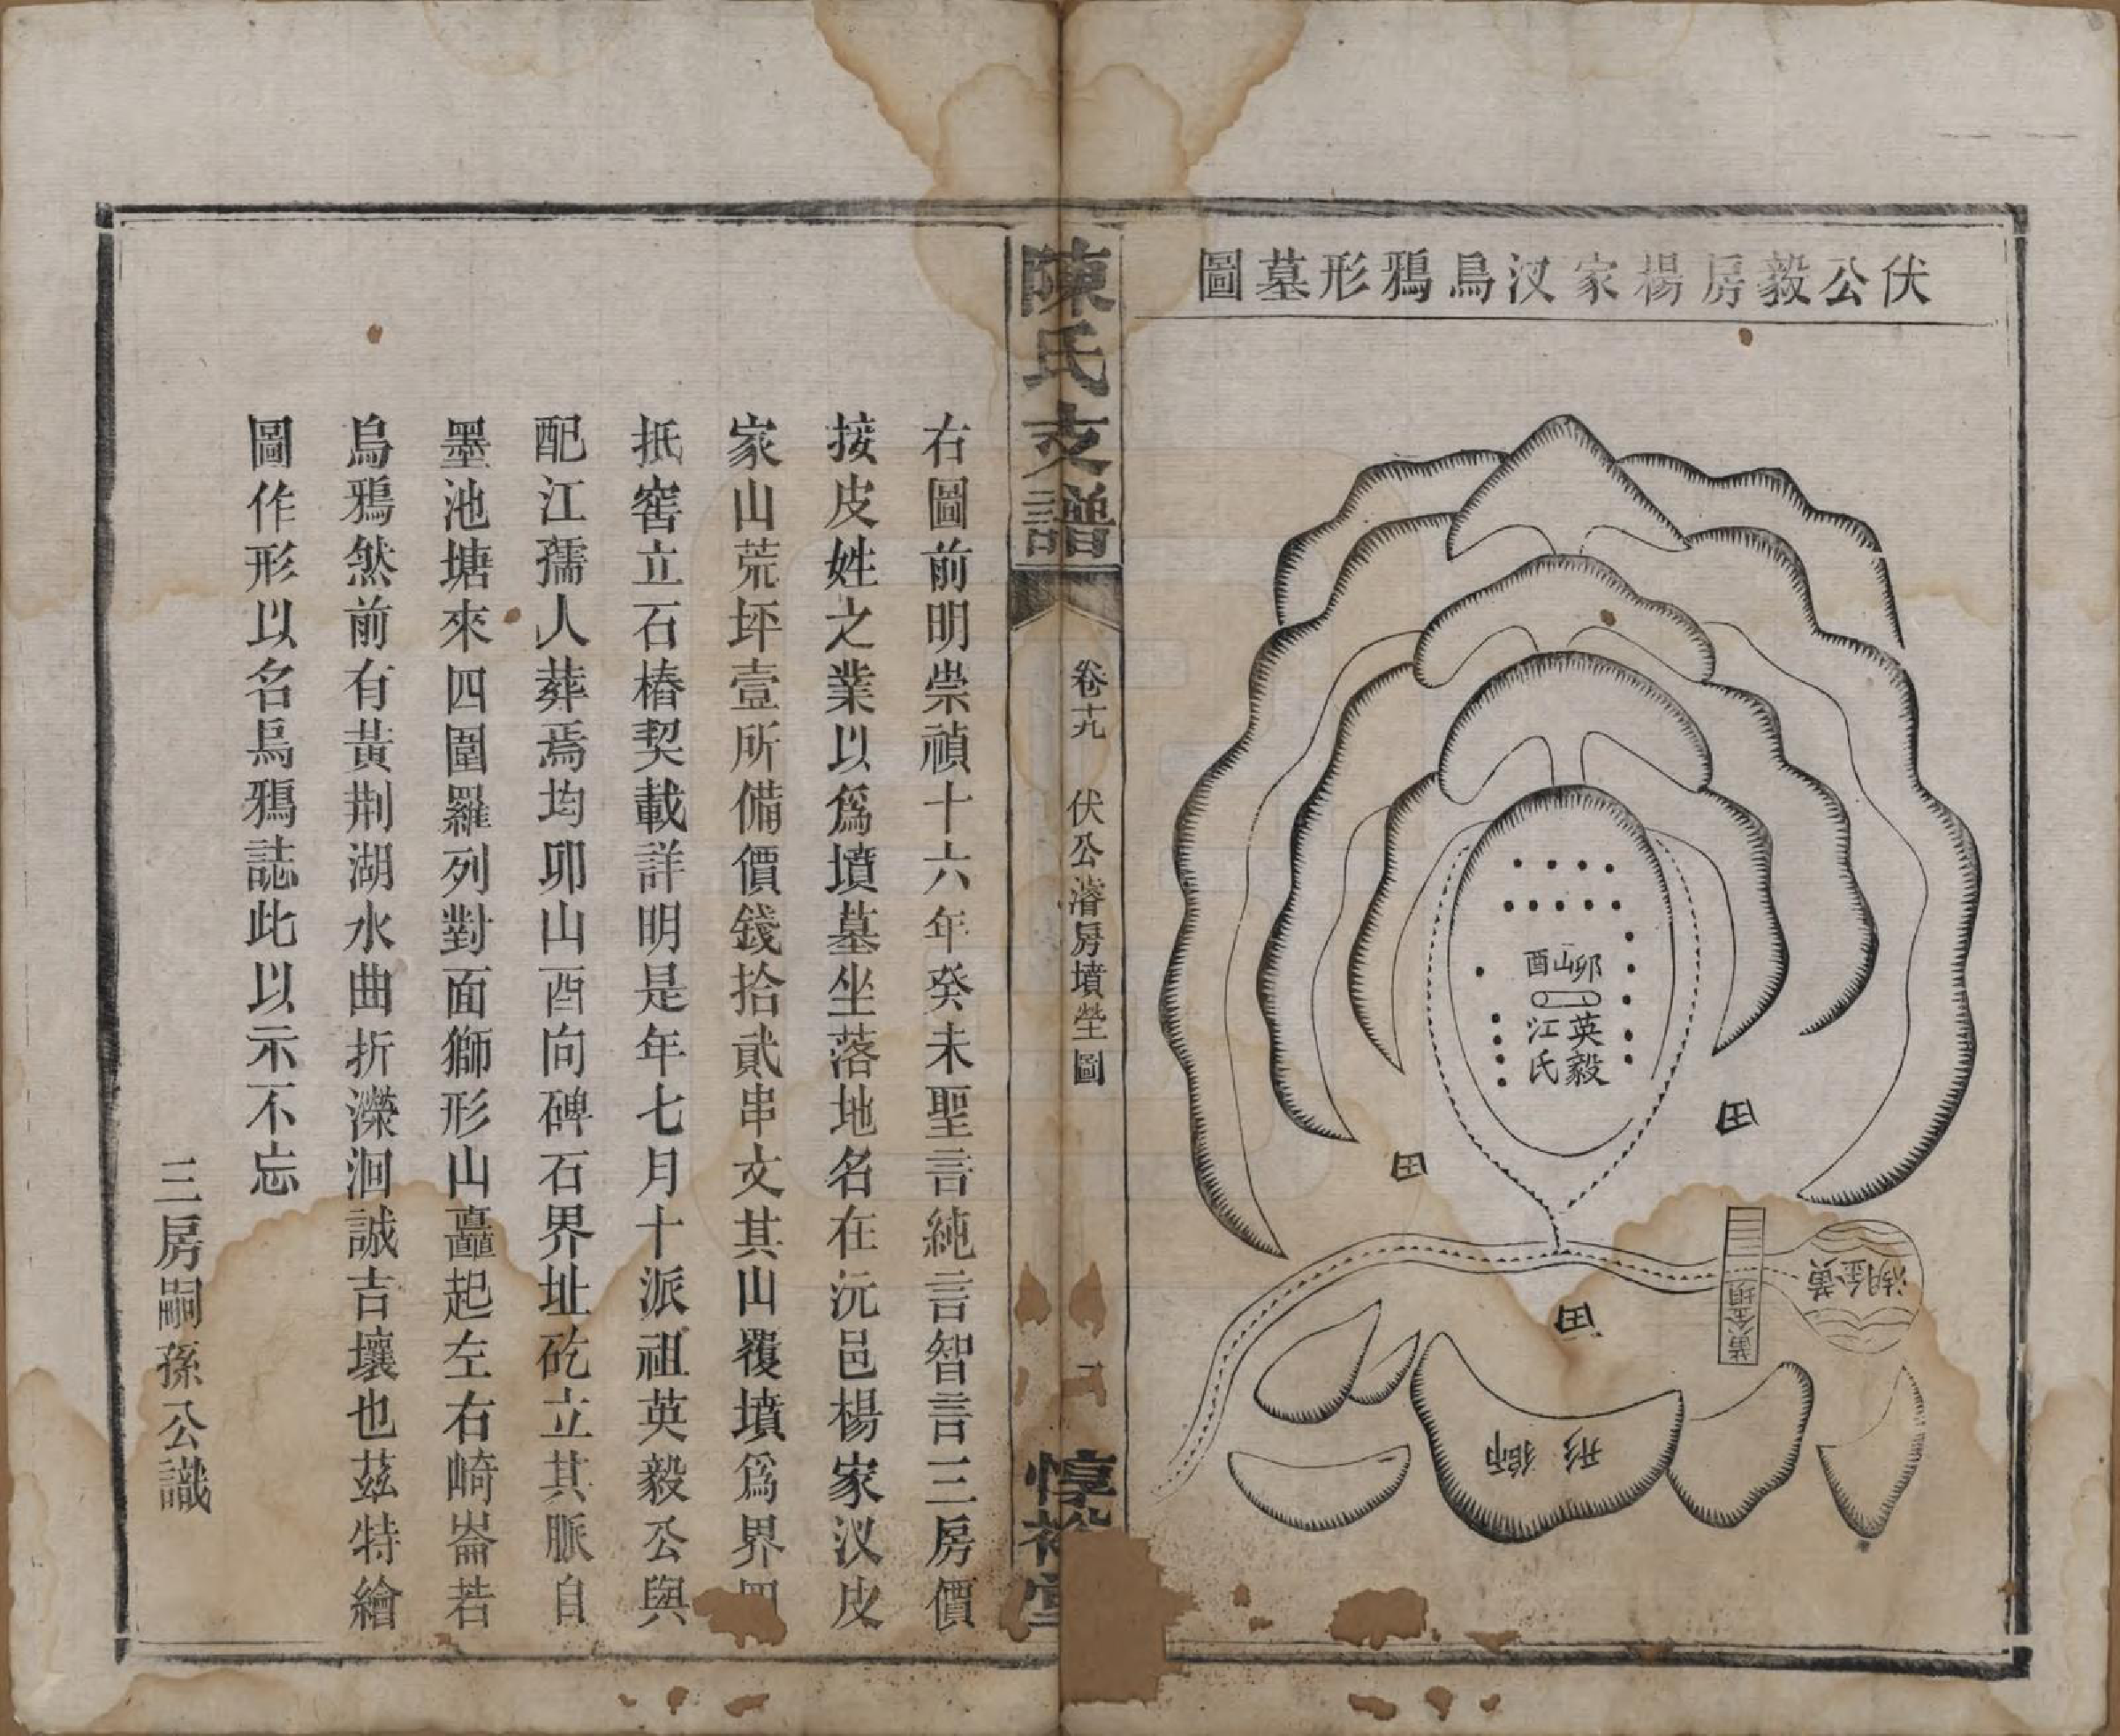 伏公毅房楊家汊烏鴉形墓圖
卯山酉
英毅
江氏
田
田
田
黃金湖
黃金垻
獅形
陳氏支譜
卷十九
伏公濬房墳塋圖
惇裕堂
右圖前明崇禎十六年癸未聖言純言智言三房價
接皮姓之業以爲墳墓坐落地名在沅邑楊家汊皮
家山荒坪壹所備價錢拾貳串文其山覆墳爲界四
抵窖立石樁契載詳明是年七月十派祖英毅公與
配江孺人葬焉均卯山酉向碑石界址矻立其脈自
墨池塘來四圍羅列對面獅形山矗起左右崎崙若
烏鴉然前有黃荆湖水曲折濚洄誠吉壤也茲特繪
圖作形以名烏鴉誌此以示不忘
三房嗣孫公識